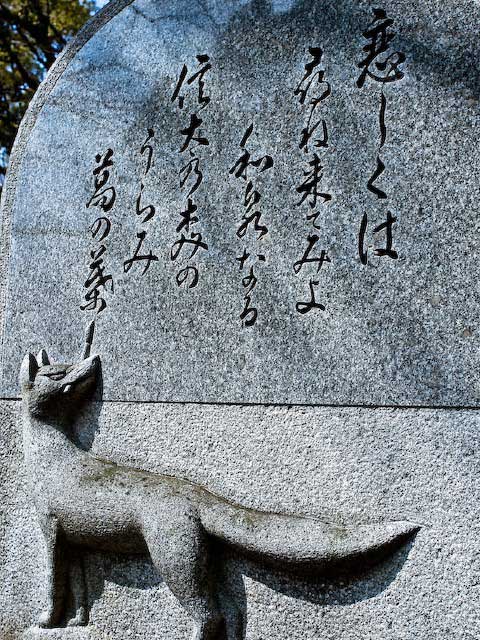 恋しくは
尋ね来てみよ
和泉なる
信太乃森の
うらみ
葛の葉